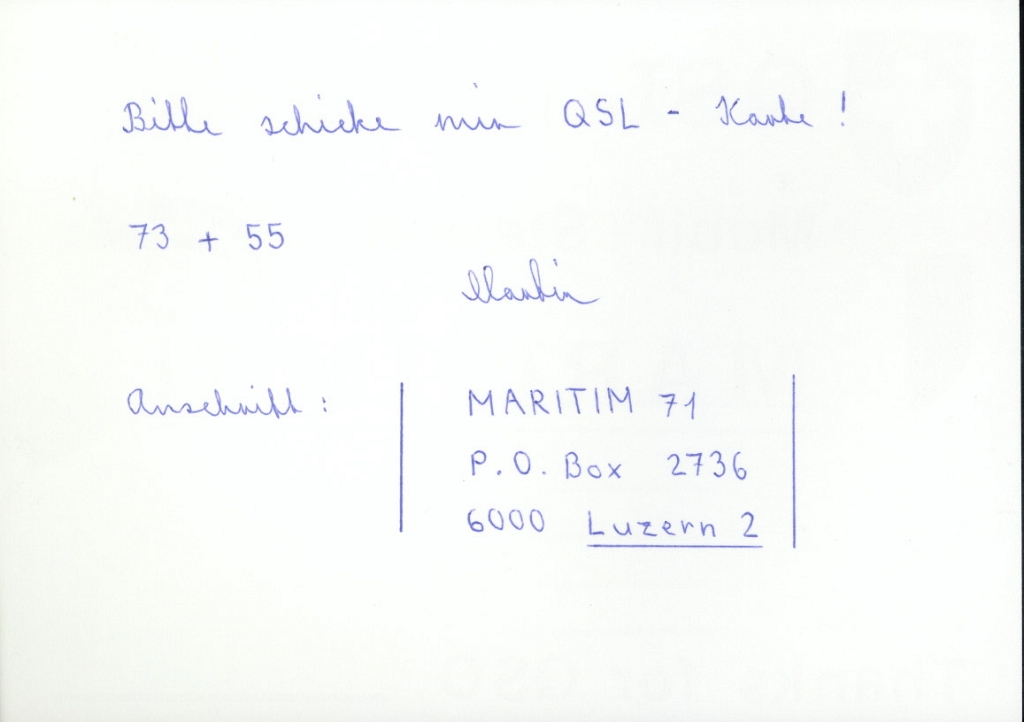 Bitte schicke mir QSL - Karte !
73 + 55
Martin
Anschrift :
MARITIM 71
P. O. Box 2736
6000 Luzern 2